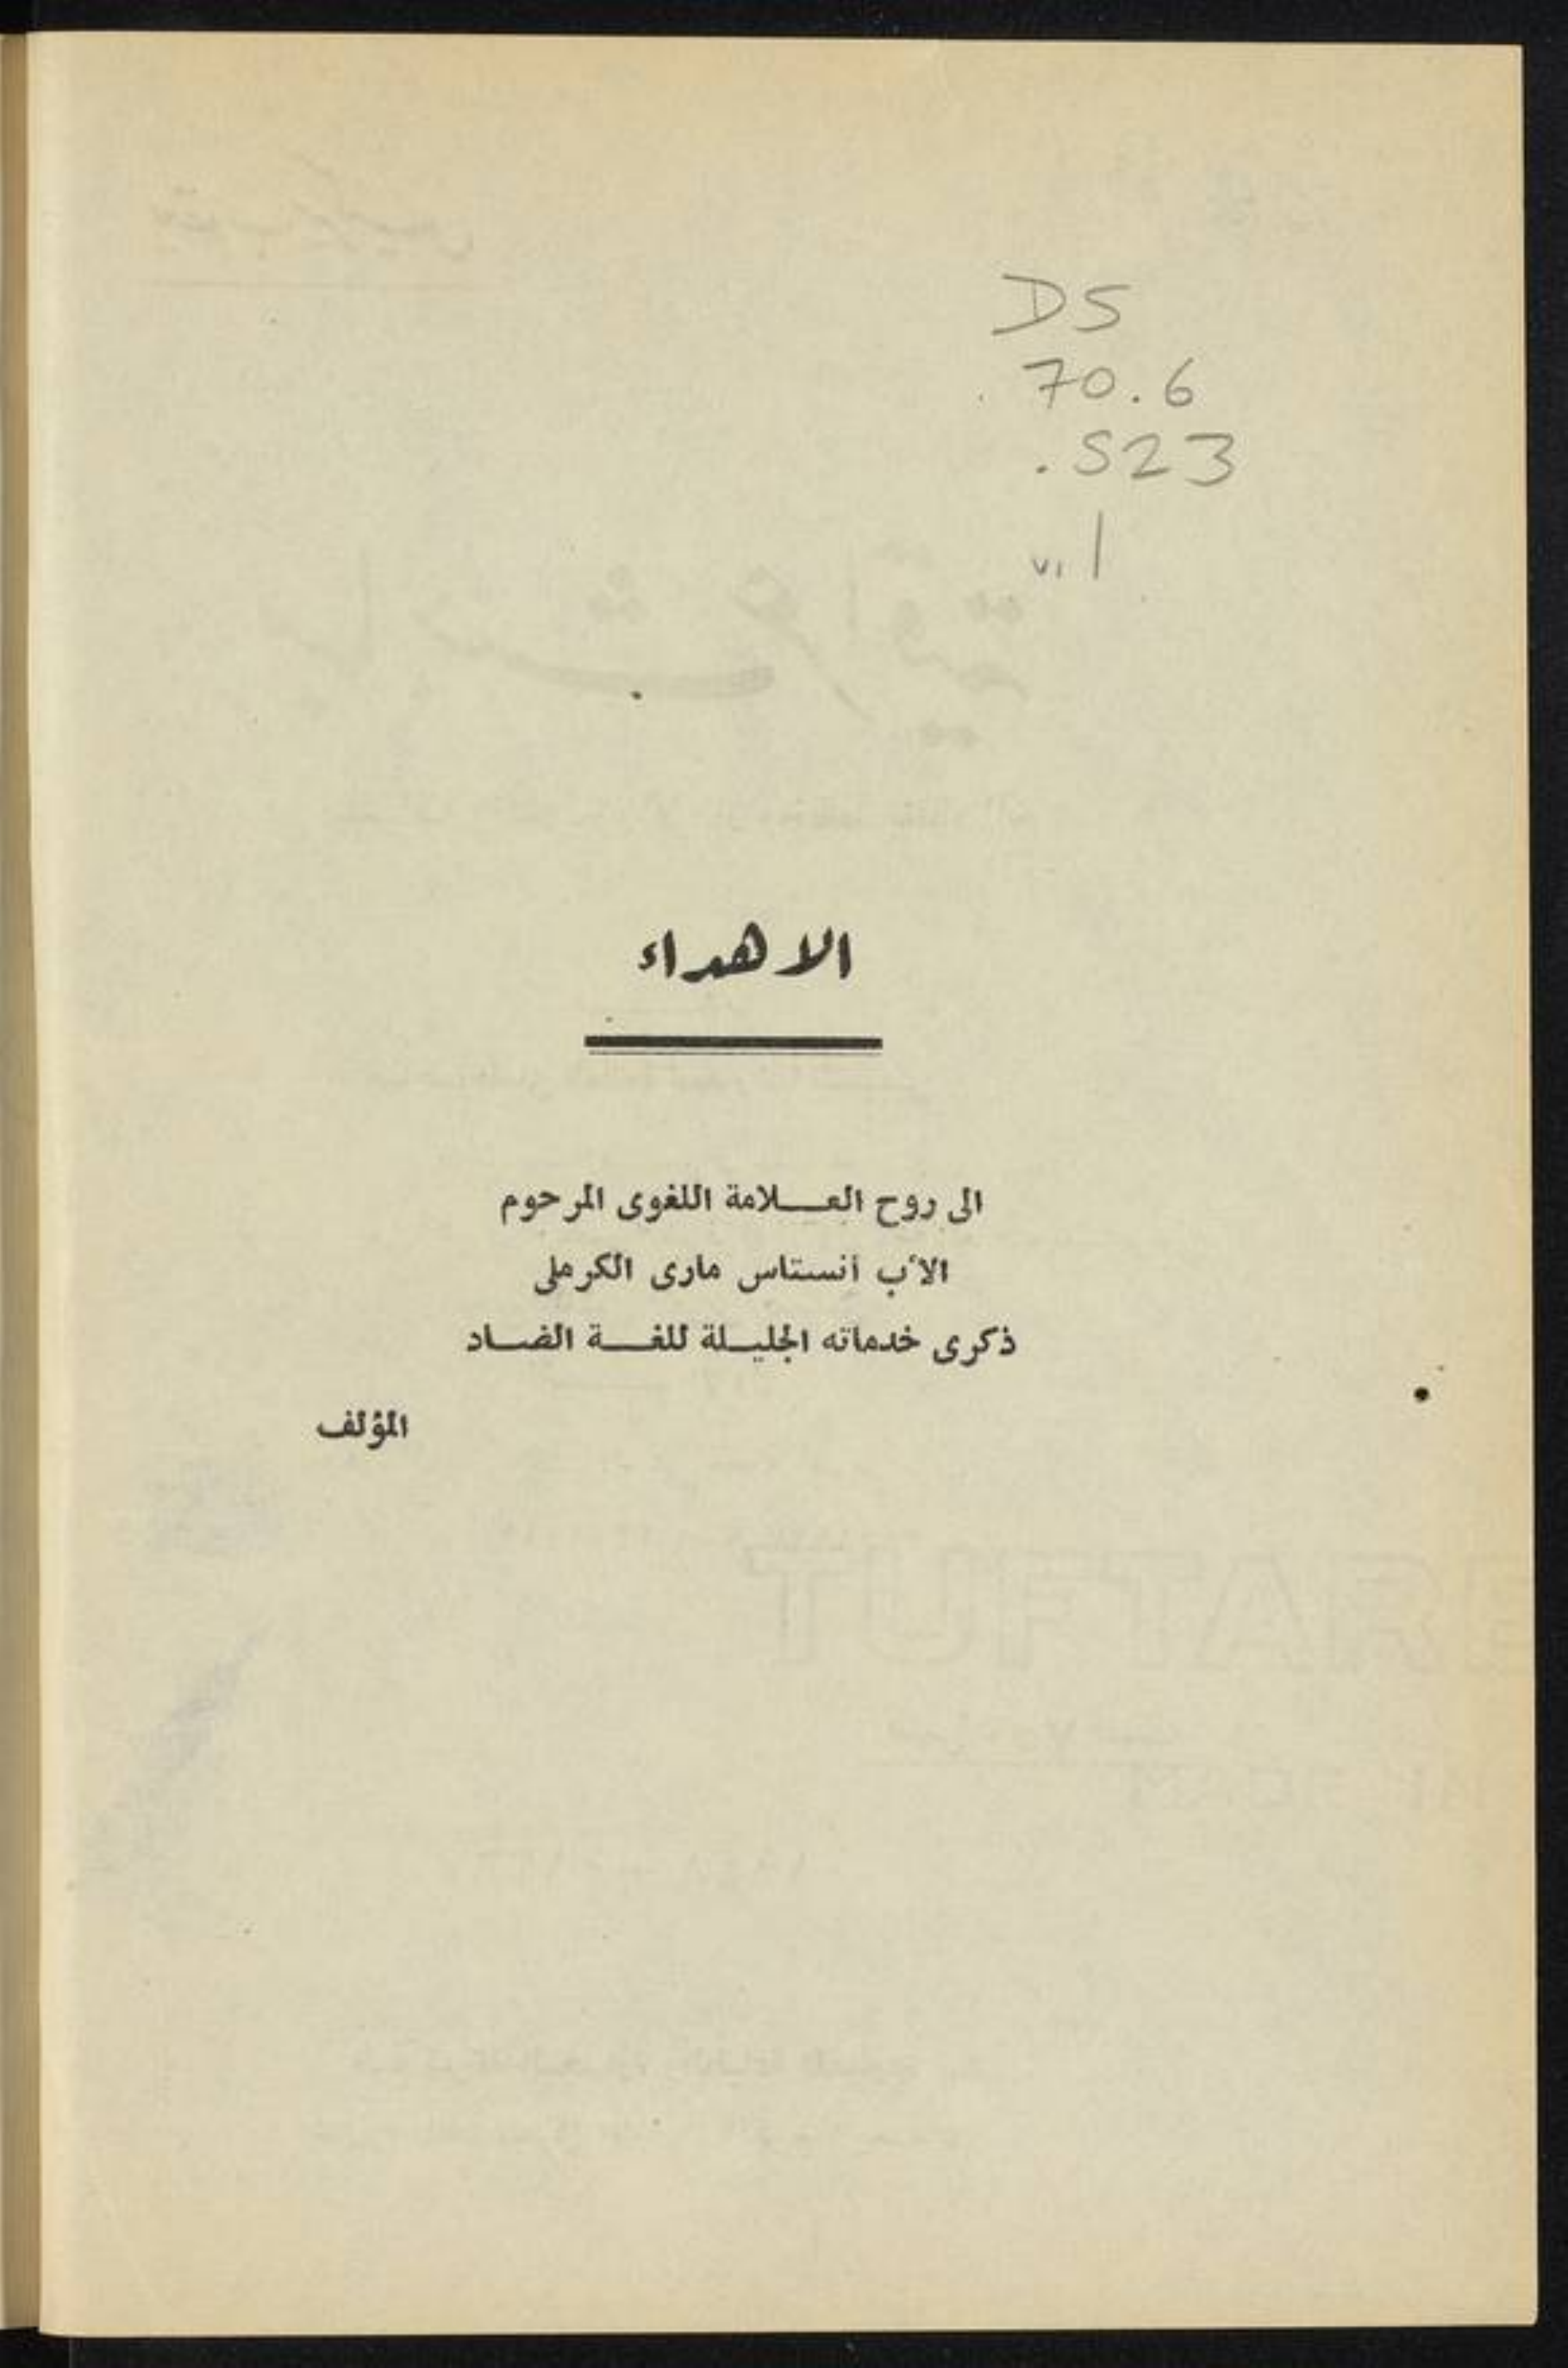 DS
70.6
.S23
v. 1
الاهداء
الى روح العلامة اللغوى المرحوم
الأب أنستاس مارى الكرملى
ذكرى خدماته الجليلة للغة الضاد
المؤلف